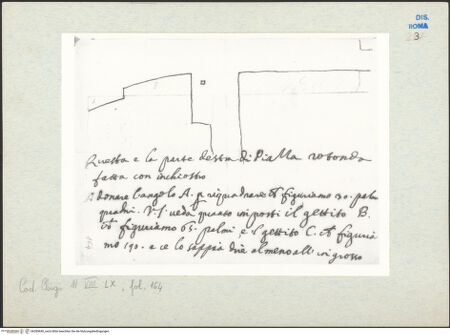 DIS.
ROMA
3
Questa e la parte destra di Piazza rotonda
fatta con inchiostro
donare l'angolo A. p riquadrare figuriamo 30. palmi
quadri. V.S. ueda quanto importi il gettito B.
figuriamo 65. palmi, e il gettito C. figuria
mo 190. a ce lo sappia dire almeno all'ingrosso
Cod. Chigi P VII LX, fol. 164